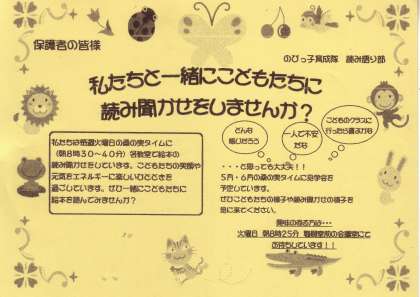 保護者の皆様
のびっ子育成隊 読み語り部
私たちと一緒にこどもたちに
読み聞かせをしませんか？
どんな
感じだろう
一人で不安
だな
こどものクラスに
行ったら嫌がるかな
私たちは毎週火曜日の森の実タイムに
（朝8時30～40分）各教室で絵本の
読み聞かせをしています。こどもたちの笑顔や
元気をエネルギーに楽しいひとときを
過ごしています。ぜひ一緒にこどもたちに
絵本を読んでみませんか？
・・・と思っても大丈夫！！
5月・6月の森の実タイムに見学会を
予定しています。
ぜひこどもたちの様子や読み聞かせの様子を
見に来てください。
興味のある方は…
火曜日 朝8時25分 職員室前の会議室にて
お待ちしています！！